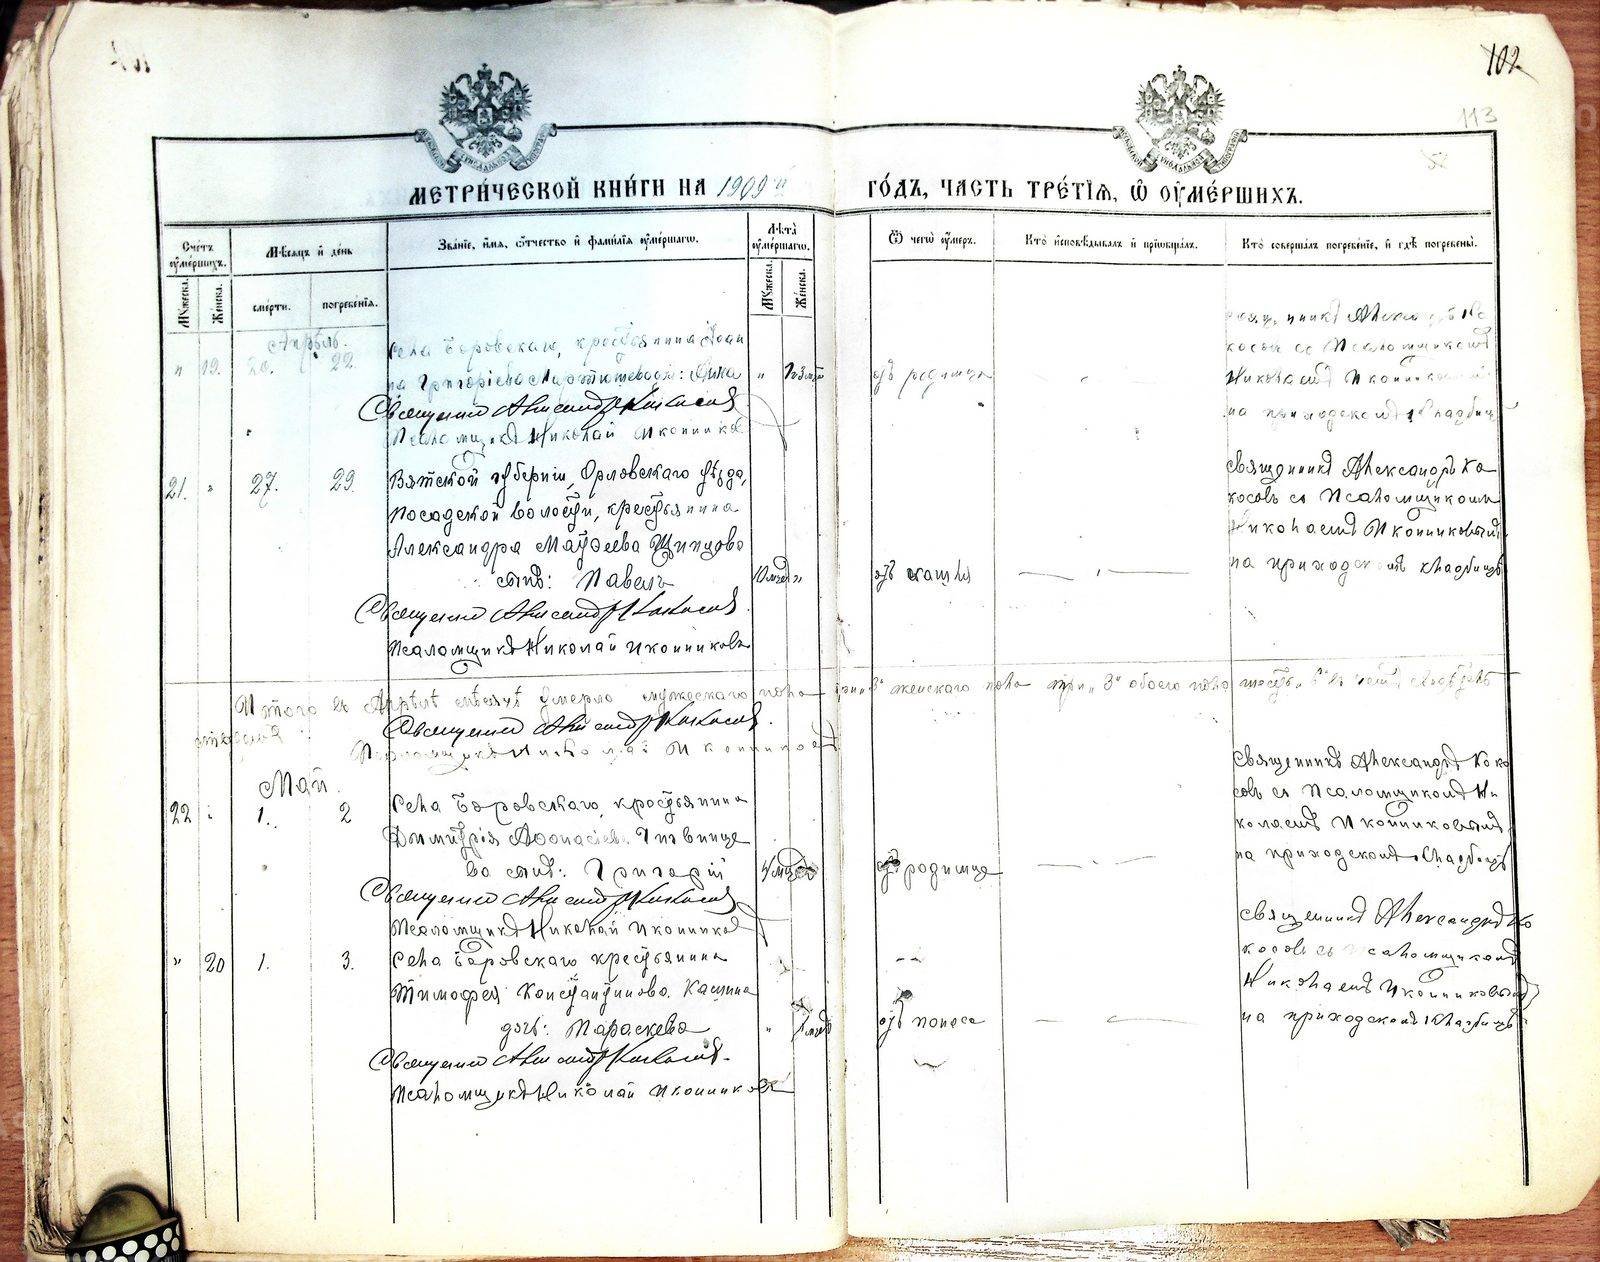 102
113
МЕТРИ́ЧЕСКОЙ КНИ́ГИ НА 1909й ГО́ДЪ, ЧАСТЬ ТРЕ́ТІѦ, Ѽ ОУМЕ́РШИХЪ.
Сче́тъ оуме́ршихъ.
Мꙋжеска.
Же́нска.
Мѣсѧцъ и҆ де́нь
сме́рти.
погребе́нїѧ.
Зва́нїе, и҆́мѧ, ѻ҆́тчество и҆ фамі́лїѧ оуме́ршагѡ.
Лѣта̀ оуме́ршагѡ.
Мꙋжеска.
Же́нска.
Ѿ чегѡ̀ оу́меръ.
Кто̀ и҆сповѣ́дывалъ и҆ прїѡбща́лъ.
Кто̀ соверша́лъ погребе́нїе, и҆ гдѣ̀ погребены̀.
Апрѣль.
" 19. 20. 22.
Села Боровскаго, крестьянина Іоан
на Григоріева
Священникъ Александръ Кокосовъ
Псаломщикъ Николай Иконниковъ
отъ родимца
Николаемъ Иконниковымъ
на приходскомъ кладбищѣ
21. " 27. 29.
Вятской губерніи, Орловскаго уѣзда,
Посадской волости, крестьянина
Александра Матѳеева
сынъ: Павелъ
10 мѣс "
Священникъ Александръ Кокосовъ
Псаломщикъ Николай Иконниковъ
отъ кашля
Священникъ Александръ Ко
косовъ съ Псаломщикомъ
Николаемъ Иконниковымъ
на приходскомъ кладбищѣ
Итого въ Апрѣлѣ мѣсяцѣ умерло мужескаго пола три "3" женскаго пола три "3" обоего пола шесть "6" въ чемъ свидѣтель
ствуемъ:
Священникъ Александръ Кокосовъ.
Псаломщикъ Николай Иконниковъ
Май.
22 " 1. 2
Села Боровскаго, крестьянина
Димитрія Аѳонасіева
ва сынъ: Григорій
Священникъ Александръ Кокосовъ
Псаломщикъ Николай Иконниковъ
отъ родимца
Священникъ Александръ Коко
совъ съ Псаломщикомъ Ни
колаемъ Иконниковымъ
на приходскомъ кладбищѣ
" 20 1. 3.
Села Боровскаго крестьянина
Тимофея Константинова. Кашина
дочь: Параскева
Священникъ Александръ Кокосовъ.
Псаломщикъ Николай Иконниковъ
отъ поноса
Священникъ Александръ Ко
косовъ съ Псаломщикомъ
Николаемъ Иконниковымъ
на приходскомъ кладбищѣ